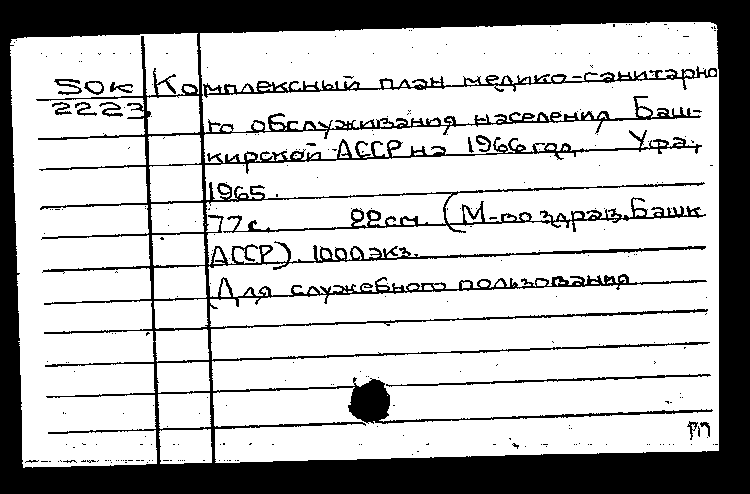 50к Комплексный план медико-санитарно
2223
го обслуживания населения Баш-
кирской АССР на 1966 год. Уфа,
1965.
77 с. 22 см. (М-во здрав. Башк
АССР). 1000 экз.
Для служебного пользования